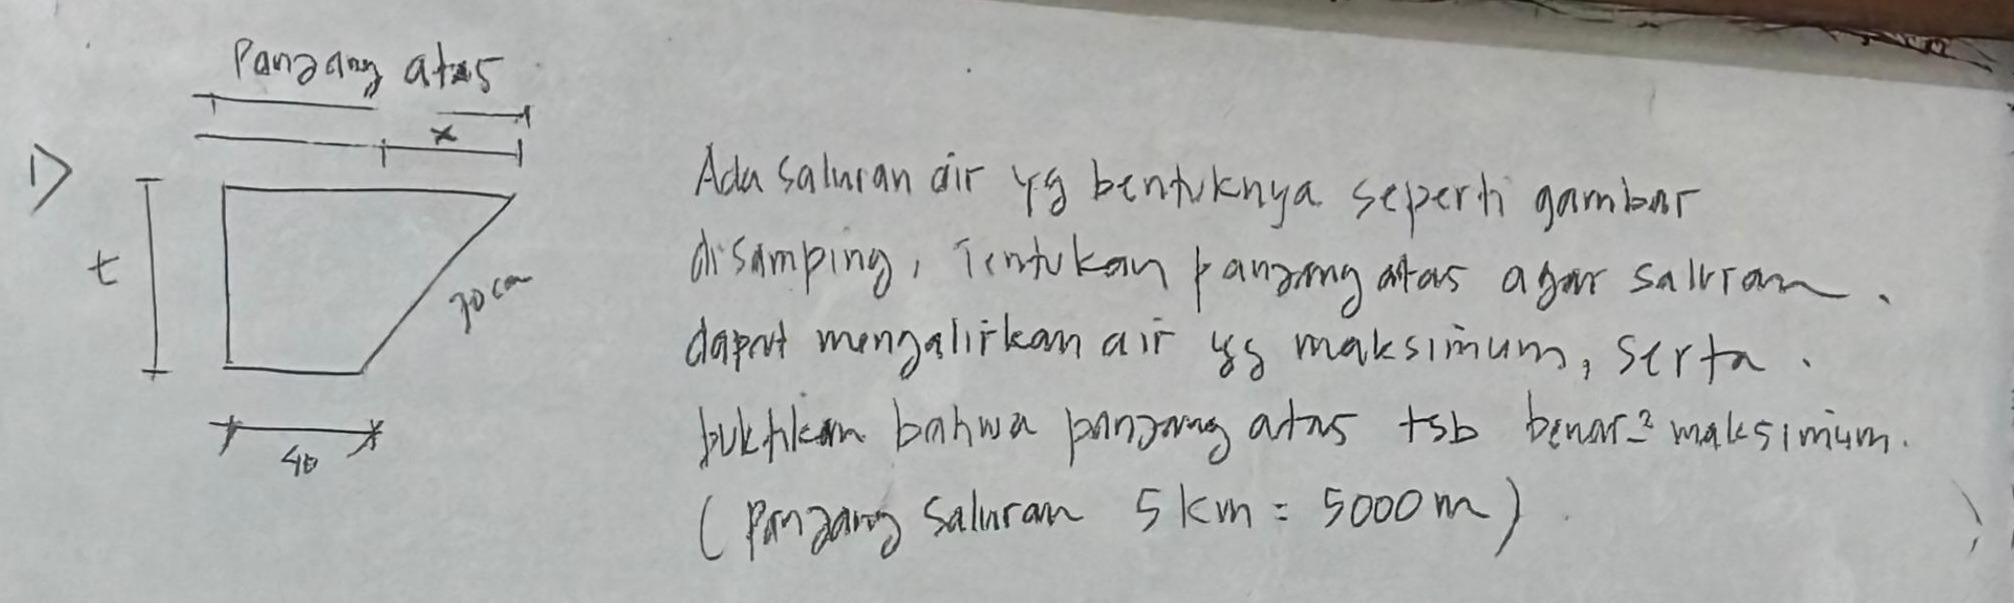 Panjang atas
x
1)
t
70 cm
40
Ada saluran air yg bentuknya seperti gambar
disamping, Tentukan panjang atas agar saluran.
dapat mengalirkan air yg maksimum, serta.
buktikan bahwa panjang atas tsb benar-2 maksimum.
(Panjang saluran 5 km = 5000 m)